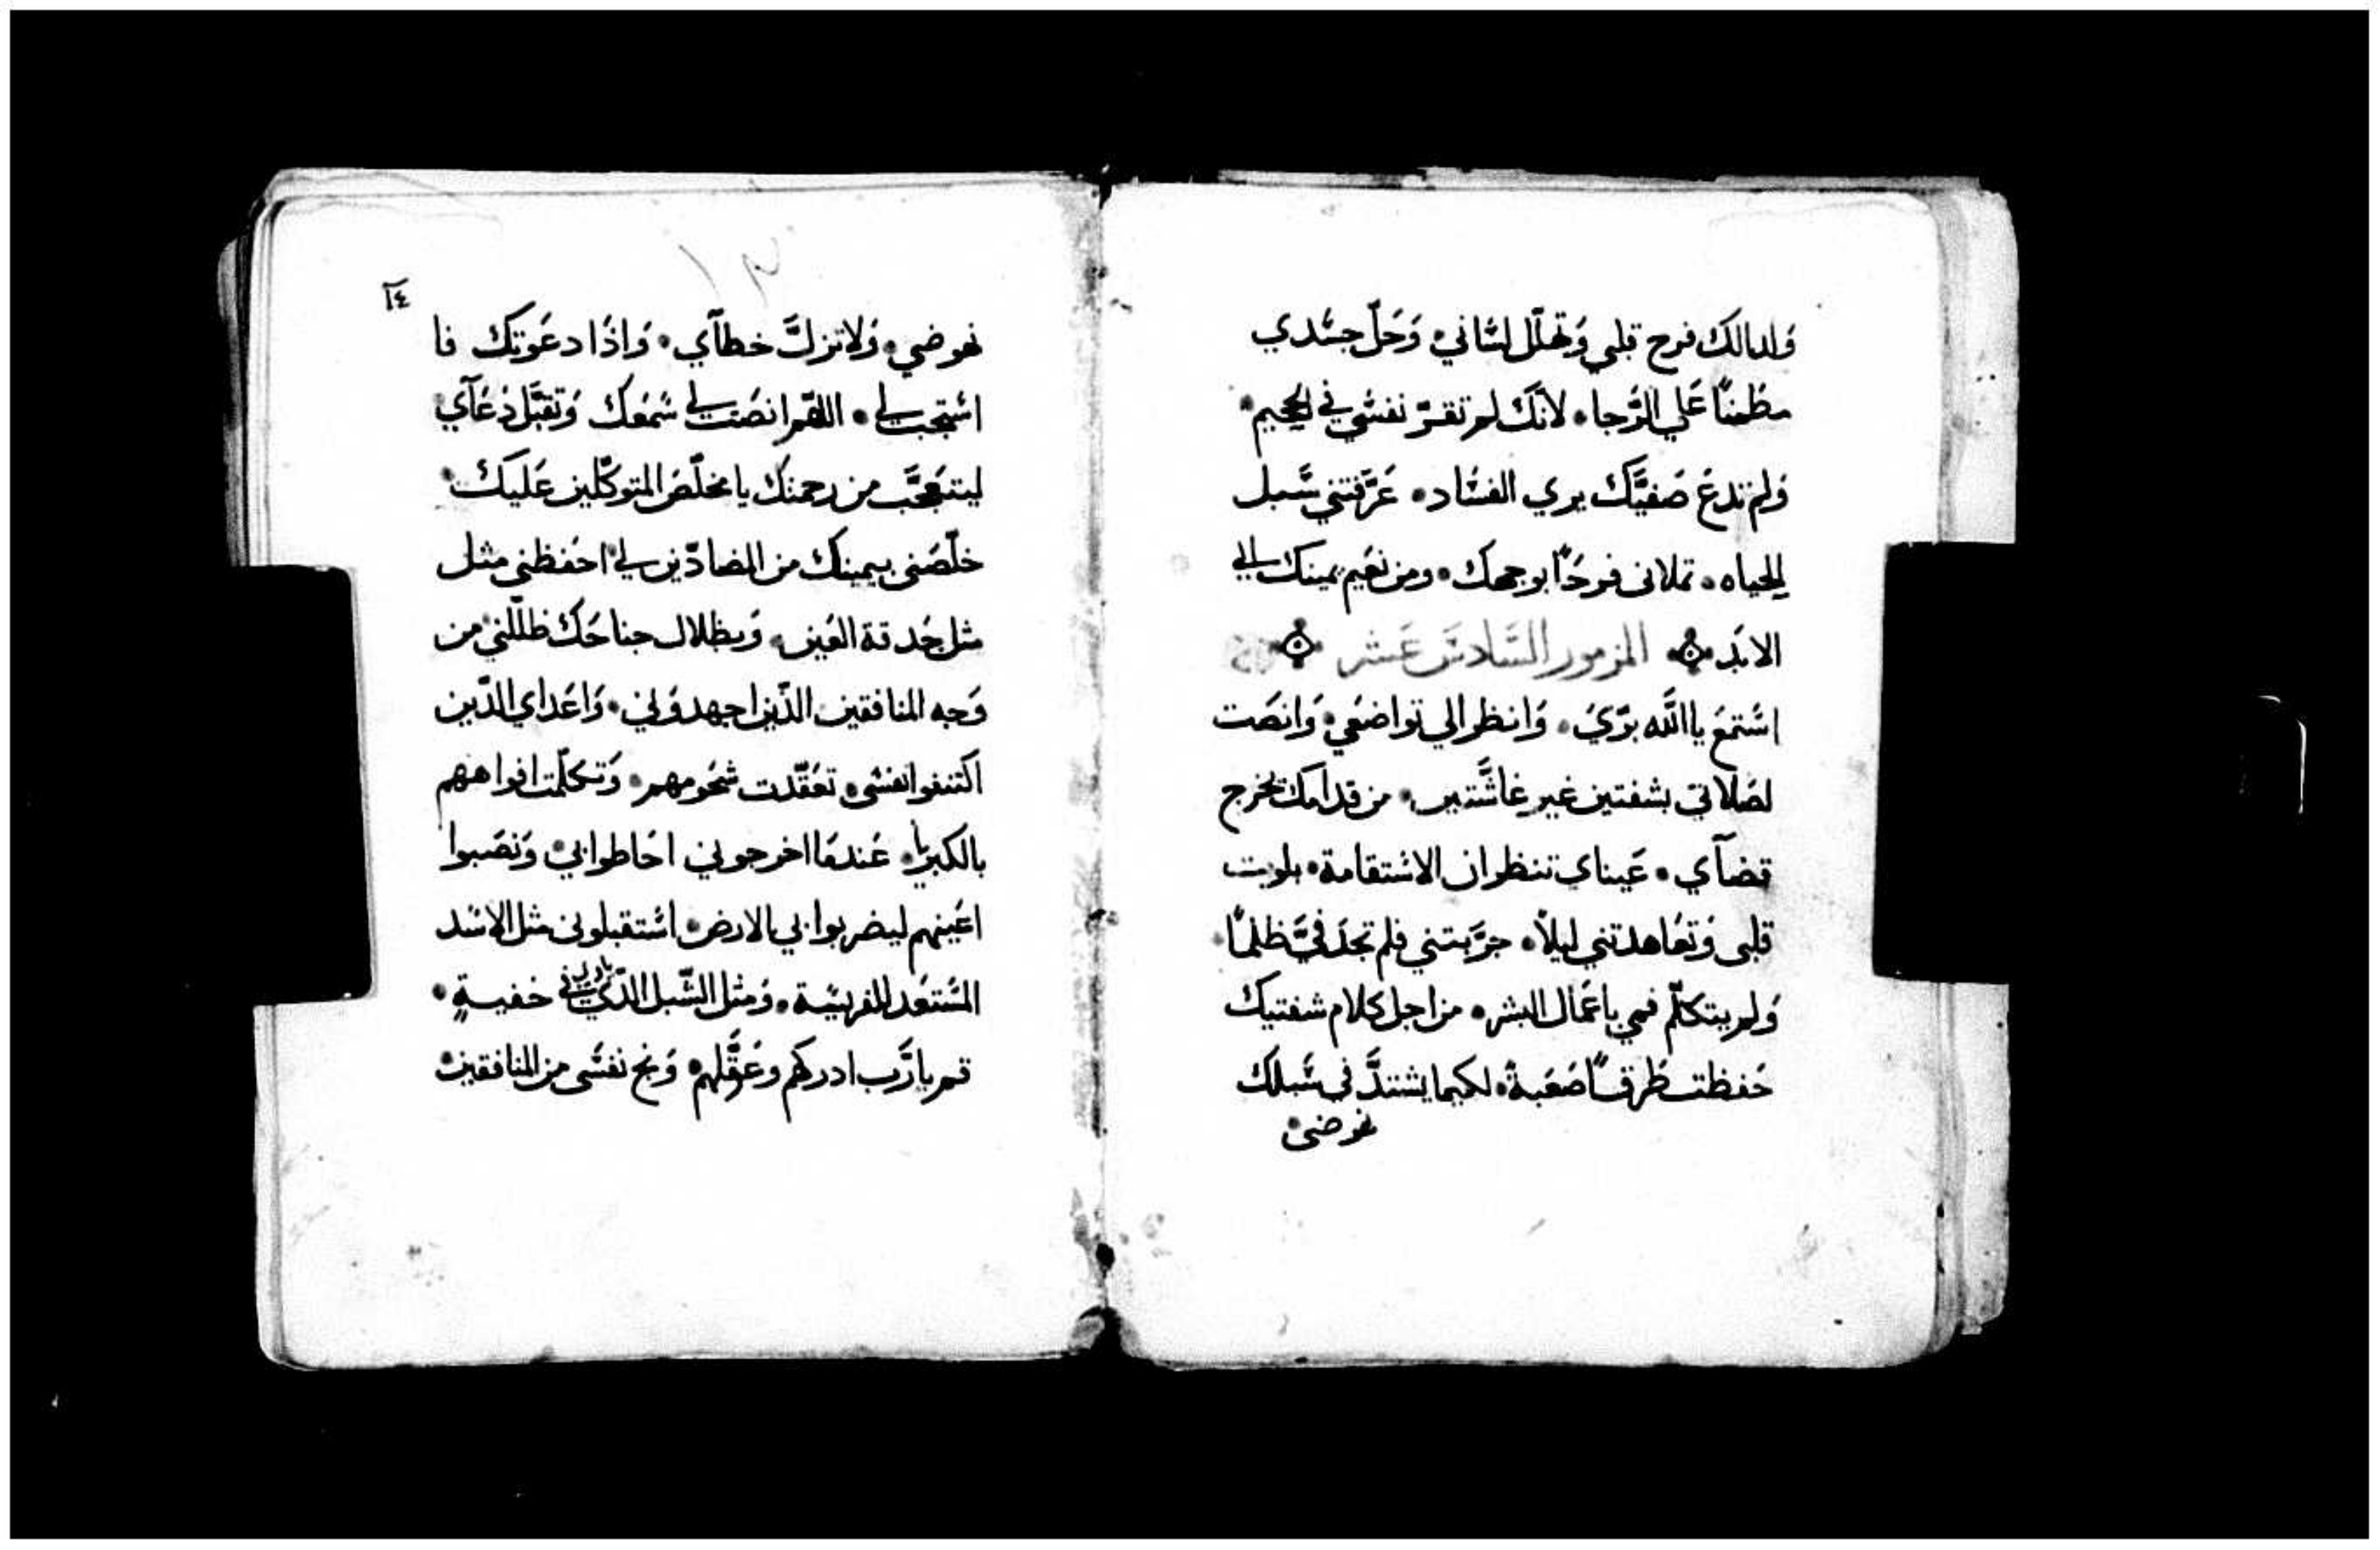 ولدالك فرح قلبي وتهلّل لساني وحلّ جسدي
مطمنًا علي الرّجا٠ لانّك لم تقرّ نفسي في الجحيم٠
ولم تدع صفيّك يري الفساد٠ عرّفتني سبل
الحياه٠ تملاني فرحًا بوجهك٠ ومن نعيم يمينك الي
الابد المزمور السّادس عشر
استمع ياالله برّي٠ وانظر الي تواضعي٠ وانصت
لصلاتي بشفتين غير غاشّتين٠ من قدامك تخرج
قضآي٠ عيناي تنظران الاستقامة٠ بلوت
قلبي وتعاهدتني ليلاً٠ جرّبتني فلم تجد فيّ ظلمًا٠
ولم يتكلّم فمي باعمال البشر٠ من اجل كلام شفتيك
حفظت طرقًا صعبة٠ لكيما يشتدّ في سبلك
نهوضي
١٤
نهوضي٠ ولا تزلّ خطآي٠ واذا دعوتك فا
استجب لي٠ اللهّم انصت لي سمعك وتقبّل دعآي
ليتعجّب من رحمتك يا مخلّص المتوكّلين عليك٠
خلّصني بيمينك من المضادّين لي احفظني مثل
مثل حدقة العين٠ وبظلال جناحك ظللّني من
وجه المنافقين الذّين اجهدوني٠ واعداي الذّين
اكتنفوا نفسي٠ تعقّدت شحومهم٠ وتكلّمت افواههم
بالكبريا٠ عندما اخرجوني احاطوا بي٠ ونصبوا
اعينهم ليضربوا بي الارض٠ استقبلوني مثل الاسد
المستعد للفريسة٠ ومثل الشّبل الذّي في خفيةٍ٠
قم يا رّب ادركهم وعرقّلهم٠ ونج نفسي من المنافقين٠